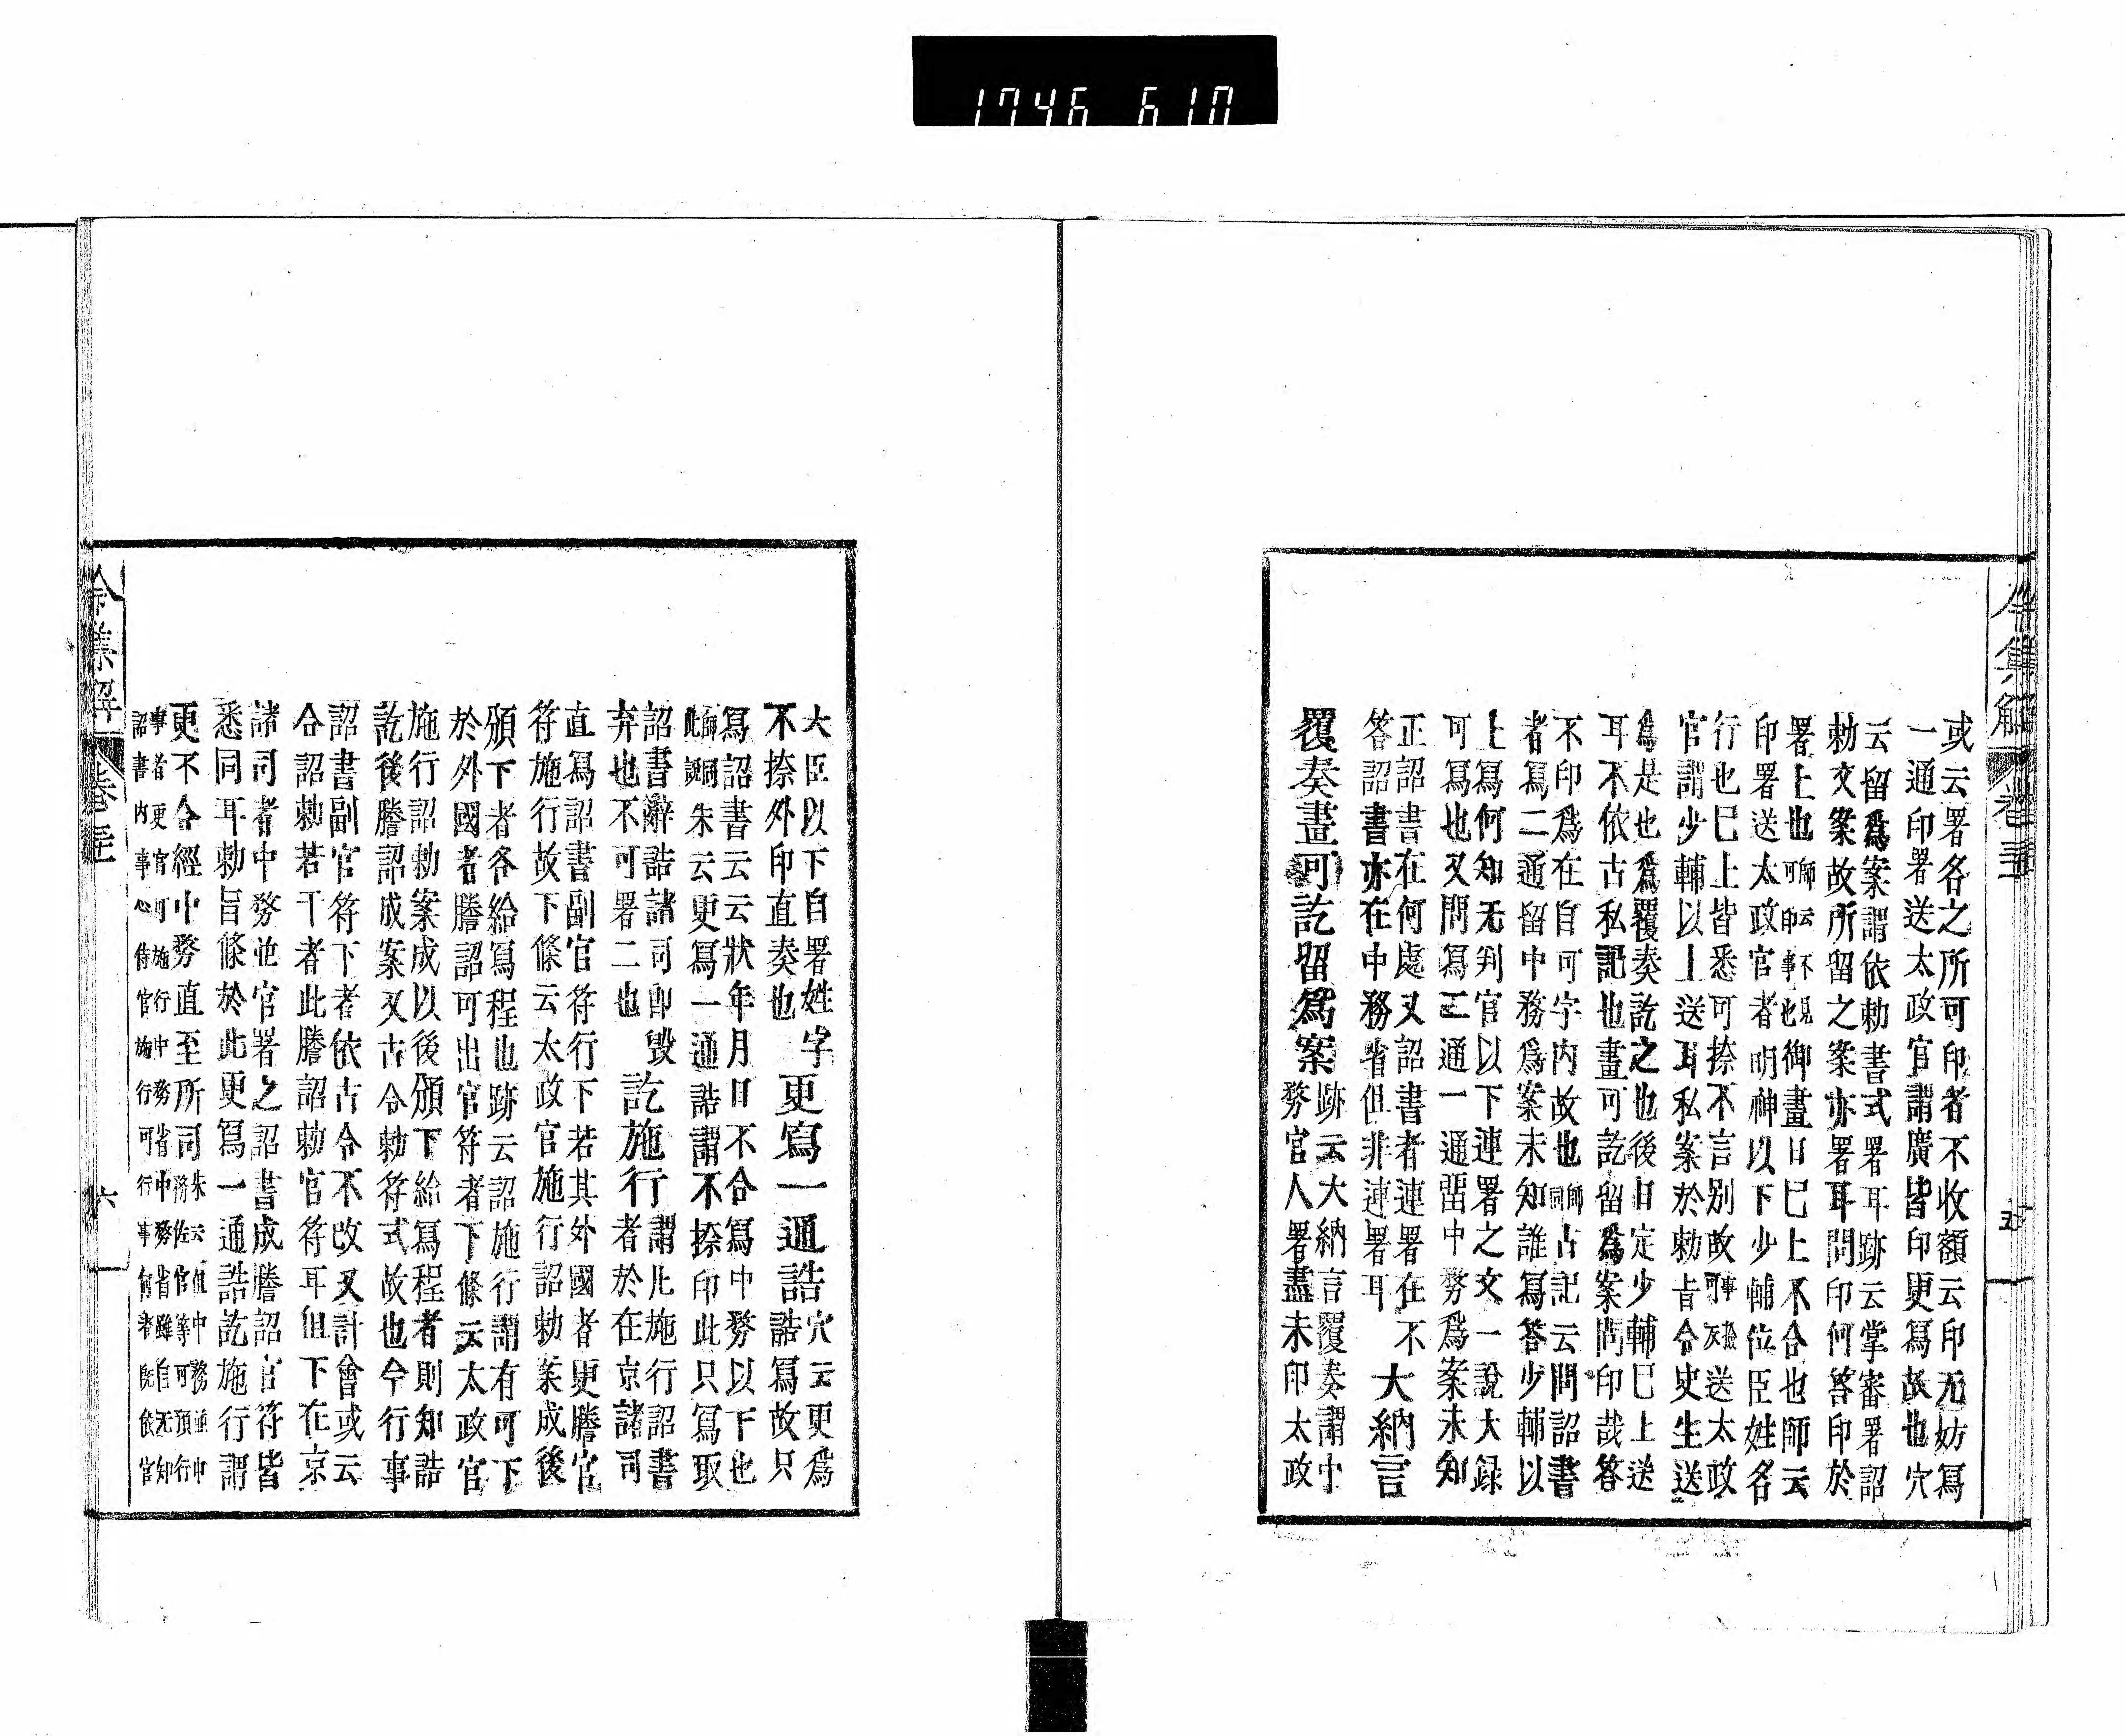 1746 610
令集解 卷三十 五
或云署各之所可印者不收額云印无妨寫
一通印署送太政官謂廣皆印更寫故也穴
云留爲案謂依勅書式署耳跡云掌審署詔
勅文案故所留之案亦署耳問印何答印於
署上也師云不見可印事也御畫日巳上不合也師云
印署送太政官者明神以下少輔位臣姓名
行也巳上皆悉可捺不言別故送太政
官謂少輔以上送耳私案於勅旨令史生送
爲是也爲覆奏訖之也後日定少輔巳上送
耳不依古私記也畫可訖留爲案問印哉答
不印爲在自可字内故也師同古記云問詔書
者寫二通留中務爲案未知誰寫答少輔以
上寫何知无判官以下連署之文一說大録
可寫也又問寫二通一通留中務爲案未知
正詔書在何處又詔書者連署在不
答詔書亦在中務省但非連署耳 大納言
覆奏畫可訖留爲案 跡云大納言覆奏謂中
務官人署盡未印太政
大臣以下自署姓字更寫一通誥 穴云更爲
不捺外印直奏也 誥寫故只
寫詔書云云狀年月日不合寫中務以下也
朱云更寫一通誥謂不捺印此只寫取
詔書辭誥諸司卽毀 訖施行 謂凡施行詔書
弃也不可署二也 者於在京諸司
直寫詔書副官符行下若其外國者更謄官
符施行故下條云太政官施行詔勅案成後
頒下者各給寫程也跡云詔施行謂有可下
於外國者謄詔可出官符者下條云太政官
施行詔勅案成以後頒下給寫程者則知誥
訖後謄詔成案又古令勅符式故也今行事
詔書副官符下者依古令不改又計會或云
合詔勅若干者此謄詔勅官符耳但下在京
諸司者中務並官署之詔書成謄詔官符皆
悉同耳勅旨條於此更寫一通誥訖施行謂
更不合經中務直至所司 朱云但中務並中
務佐官等可預行
事者更官可施行中務省中務省雖自无知
詔書内事心待官施行可行事何者既依官
令集解 卷三十 六